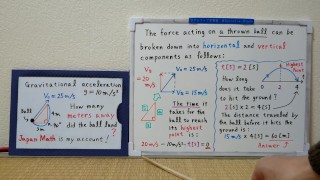 Gravitational acceleration
g = 10 m/s²
V = 25 m/s
Ball
How many
meters away
did the ball land
?
3m
~90°
Japan Math is my account!
The force acting on a thrown ball can be
broken down into horizontal and vertical
components as follows:
V = 25 m/s
= 20
m/s
Vx = 15 m/s
The time it
takes for the
ball to reach
its highest
point is:
20 m/s - 10 m/s² × t[s] = 0
t[s] = 2[s]
How long
does it take
to hit the ground?
2[s] × 2 = 4[s]
Highest
Point
0
2
4
The distance traveled by
the ball before it hits the
ground is:
15 m/s × 4[s] = 60[m]
Answer